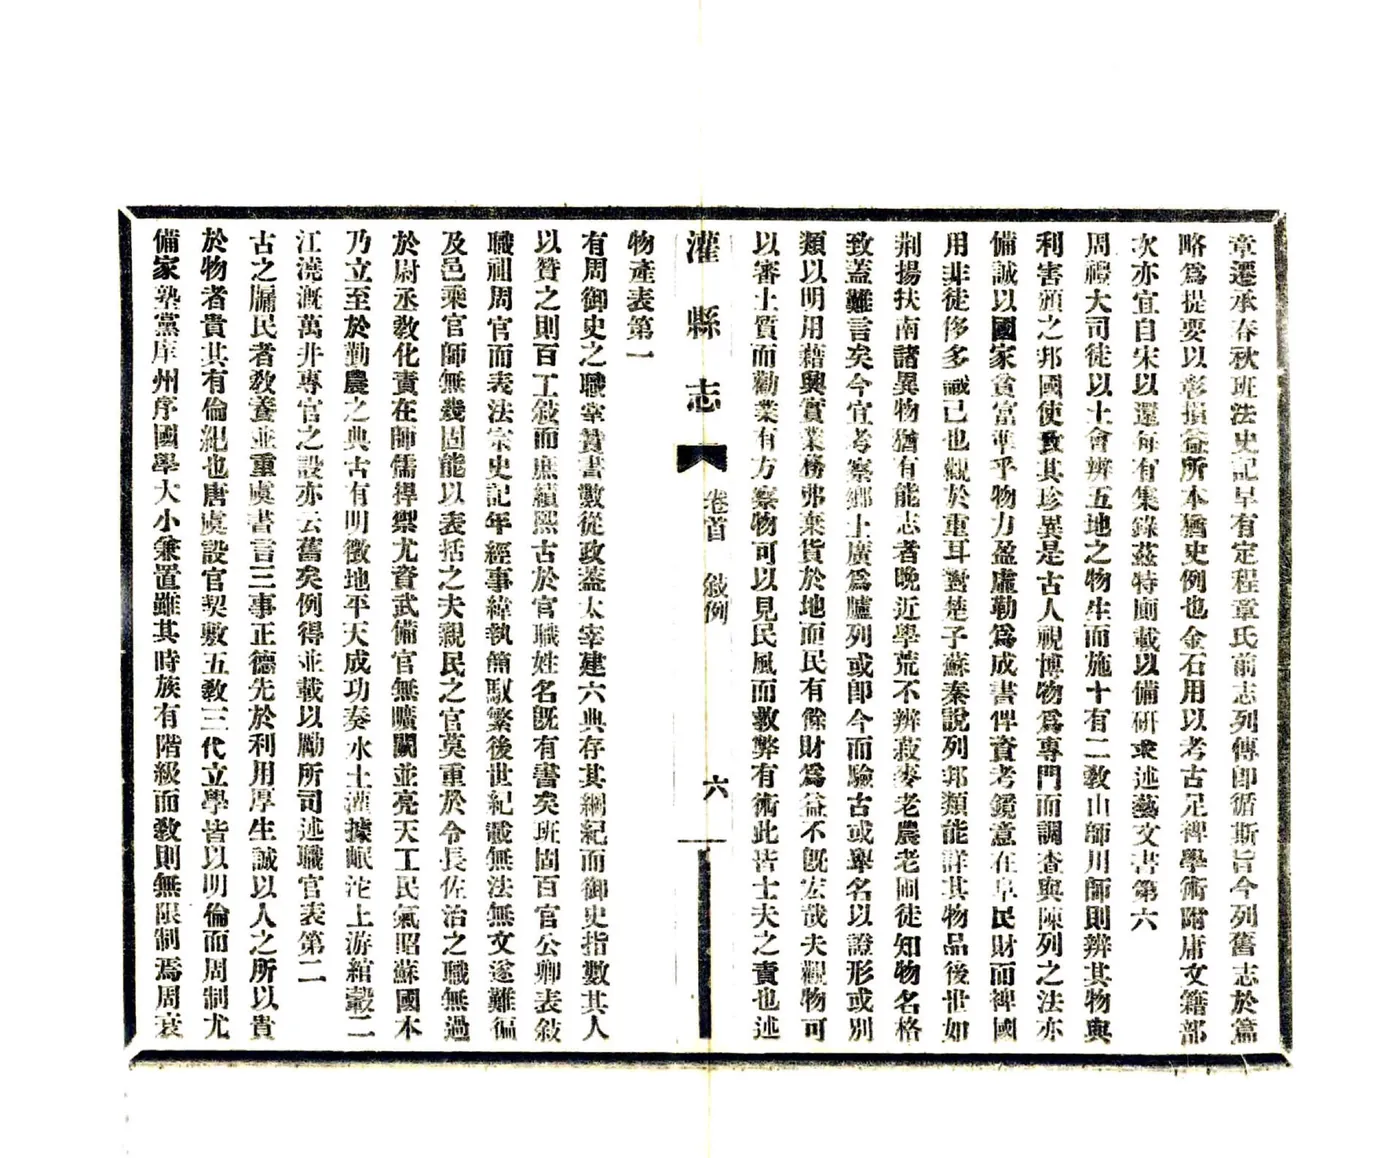 章遷承春秋班法史記早有定程章氏前志列傳卽循斯旨今列舊志於篇
略爲提要以彰損益所本猶史例也金石用以考古足裨學術附庸文籍部
次亦宜自宋以還每有集錄茲特廁載以備研求述藝文書第六
周禮大司徒以土會辨五地之物生而施十有二敎山師川師則辨其物與
利害頒之邦國使致其珍異是古人視博物爲專門而調査與陳列之法亦
備誠以國家貧富準乎物力盈虛勒爲成書俾資考鏡意在阜民財而裨國
用非徒侈多識已也觀於重耳對楚子蘇秦說列邦類能詳其物品後世如
荆揚扶南諸異物猶有能志者晚近學荒不辨菽麥老農老圃徒知物名格
致蓋難言矣今宜考察鄉土廣爲臚列或卽今而驗古或舉名以證形或別
類以明用藉興實業務弗棄貨於地而民有餘財爲益不旣宏哉夫觀物可
以審土質而勸業有方察物可以見民風而救弊有術此皆士夫之責也述
物產表第一
灌縣志
卷首 敍例
六
有周御史之職掌贊書數從政蓋太宰建六典存其綱紀而御史指數其人
以贊之則百工敍而庶績熙古於官職姓名旣有書矣班固百官公卿表敍
職祖周官而表法宗史記年經事緯執簡馭繁後世紀載無法無文遂難徧
及邑乘官師無幾固能以表括之夫親民之官莫重於令長佐治之職無過
於尉丞敎化責在師儒捍禦尤資武備官無曠闕並亮天工民氣昭蘇國本
乃立至於勤農之典古有明徵地平天成功奏水土灌據岷沱上游綰轂二
江澆漑萬井專官之設亦云舊矣例得並載以勵所司述職官表第二
古之牖民者敎養並重虞書言三事正德先於利用厚生誠以人之所以貴
於物者貴其有倫紀也唐虞設官契敷五敎三代立學皆以明倫而周制尤
備家塾黨庠州序國學大小兼置雖其時族有階級而敎則無限制焉周衰